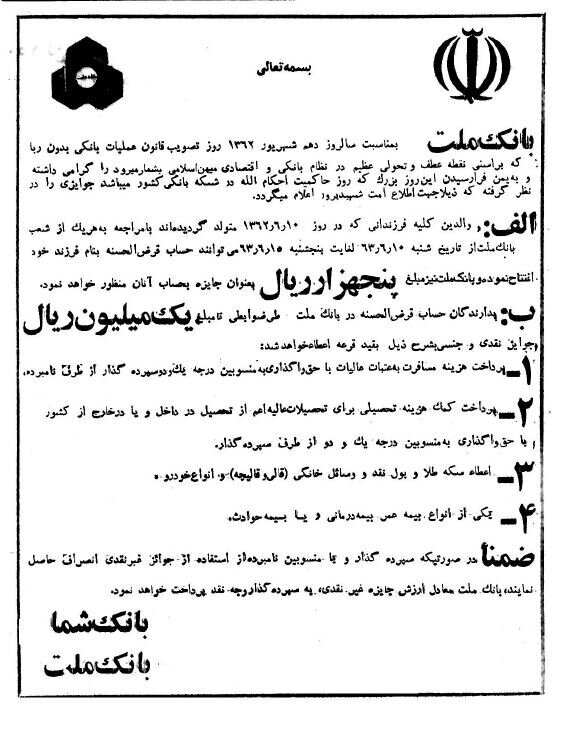 بسمه تعالی
بانک ملت بمناسبت سالروز دهم شهریور ۱۳۶۲ روز تصویب قانون عملیات بانکی بدون ربا
که براستی نقطه عطف و تحولی عظیم در نظام بانکی و اقتصادی میهن اسلامی بشمار میرود را گرامی داشته
و به یمن فرارسیدن این روز بزرگ که روز حاکمیت احکام الله در شبکه بانکی کشور میباشد جوایزی را در
نظر گرفته که ذیلا جهت اطلاع امت شهیدپرور اعلام میگردد.
الف: والدین کلیه فرزندانی که در روز ۱۳۶۲ر۶ر۱۰ متولد گردیده‌اند با مراجعه به هریک از شعب
بانک ملت از تاریخ شنبه ۶۳ر۶ر۱۰ لغایت پنجشنبه ۶۳ر۶ر۱۵ می توانند حساب قرض الحسنه بنام فرزند خود
افتتاح نموده و بانک ملت نیز مبلغ پنجهزار ریال بعنوان جایزه بحساب آنان منظور خواهد نمود.
ب: بدارندگان حساب قرض الحسنه در بانک ملت طی ضوابطی تا مبلغ یک میلیون ریال
جوایز نقدی و جنسی بشرح ذیل بقید قرعه اعطاء خواهد شد:
۱ـ پرداخت هزینه مسافرت به عتبات عالیات با حق واگذاری به منسوبین درجه یک و دو سپرده گذار از طرف نامبرده.
۲ـ پرداخت کمک هزینه تحصیلی برای تحصیلات عالیه اعم از تحصیل در داخل و یا در خارج از کشور
با حق واگذاری به منسوبین درجه یک و دو از طرف سپرده گذار.
۳ـ اعطاء سکه طلا و پول نقد و وسائل خانگی (قالی و قالیچه) و انواع خودرو.
۴ـ یکی از انواع بیمه عمر، بیمه درمانی و یا بیمه حوادث.
ضمناً در صورتیکه سپرده گذار و یا منسوبین نامبرده از استفاده از جوائز غیرنقدی انصراف حاصل
نمایند، بانک ملت معادل ارزش جایزه غیر نقدی، به سپرده گذار وجه نقد پرداخت خواهد نمود.
بانک شما
بانک ملت